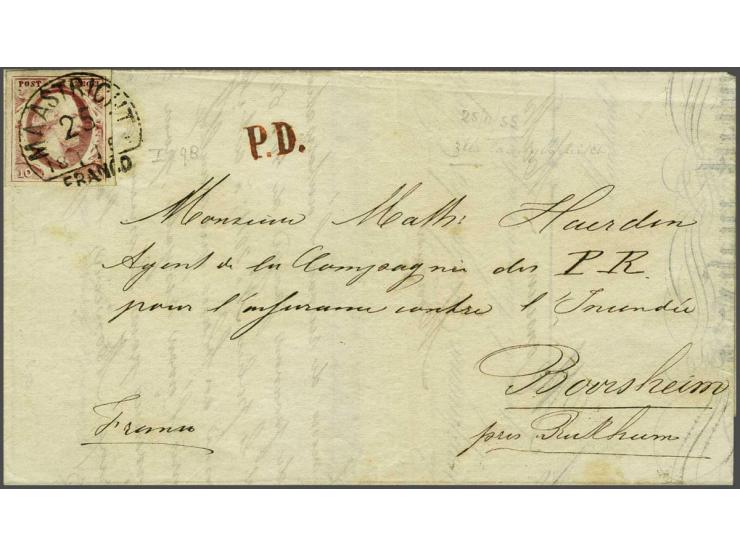 POST
MAASTRICHT
25
FRANCO
10
P.D.
25 11 55
I 29B
Monsieur Math: Haerden
Agent de la Compagnie des P. R.
pour l'assurance contre l'Incendie
Boorsheim
près Reikheim
Franco